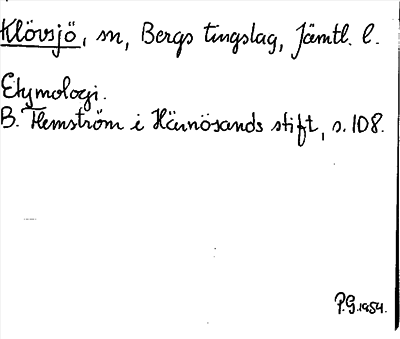 Klövsjö, sn, Bergs tingslag, Jämtl. l.
Etymologi.
B. Flemström i Härnösands stift, s. 108.
P.G. 1954.